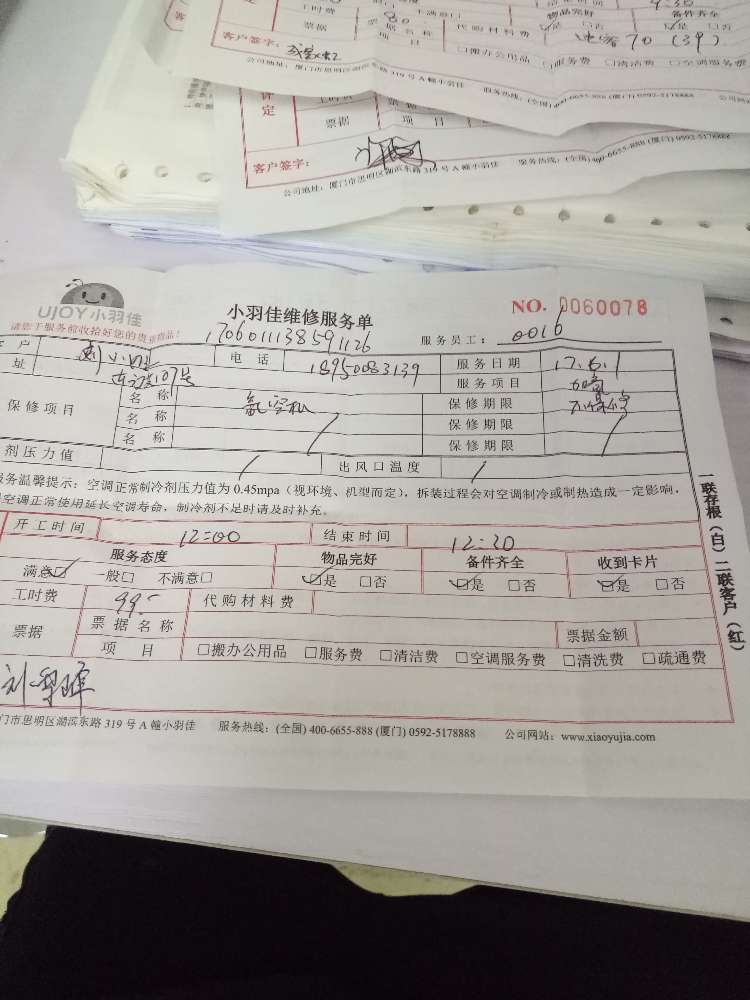 工时费 80 不满意口
票据 票据名称 代购材料费
物品完好 备件齐全
9:30
项 目 □搬办公用品 □服务费 □清洁费 □空调服务费
70 (39)
客户签字:
公司地址:厦门市思明区湖滨东路 319 号 A 幢小羽佳 服务热线:(全国) 400-6655-888 (厦门) 0592-5178888 公司网
评定
票据 项 目
客户签字:
公司地址:厦门市思明区湖滨东路 319 号 A 幢小羽佳 服务热线:(全国) 400-6655-888 (厦门) 0592-5178888
UJOY小羽佳
请您于服务前收拾好您的贵重物品!
小羽佳维修服务单
NO. 0060078
1706011138591126
服务员工: 0016
户 电 话 18950083139 服务日期 17.6.1
址 107号 服务项目
保修项目 名 称 保修期限
名 称 保修期限
名 称 保修期限
剂压力值 / 出风口温度 /
服务温馨提示:空调正常制冷剂压力值为 0.45mpa(视环境、机型而定),拆装过程会对空调制冷或制热造成一定影响,
空调正常使用延长空调寿命,制冷剂不足时请及时补充。
开工时间 12:00 结束时间 12:20
服务态度 物品完好 备件齐全 收到卡片
满意☑ 一般□ 不满意□ ☑是 □否 ☑是 □否 ☑是 □否
工时费 99.- 代购材料费
票据 票据名称 票据金额
项 目 □搬办公用品 □服务费 □清洁费 □空调服务费 □清洗费 □疏通费
门市思明区湖滨东路 319 号 A 幢小羽佳 服务热线:(全国) 400-6655-888 (厦门) 0592-5178888 公司网站:www.xiaoyujia.com
一联存根(白)二联客户(红)